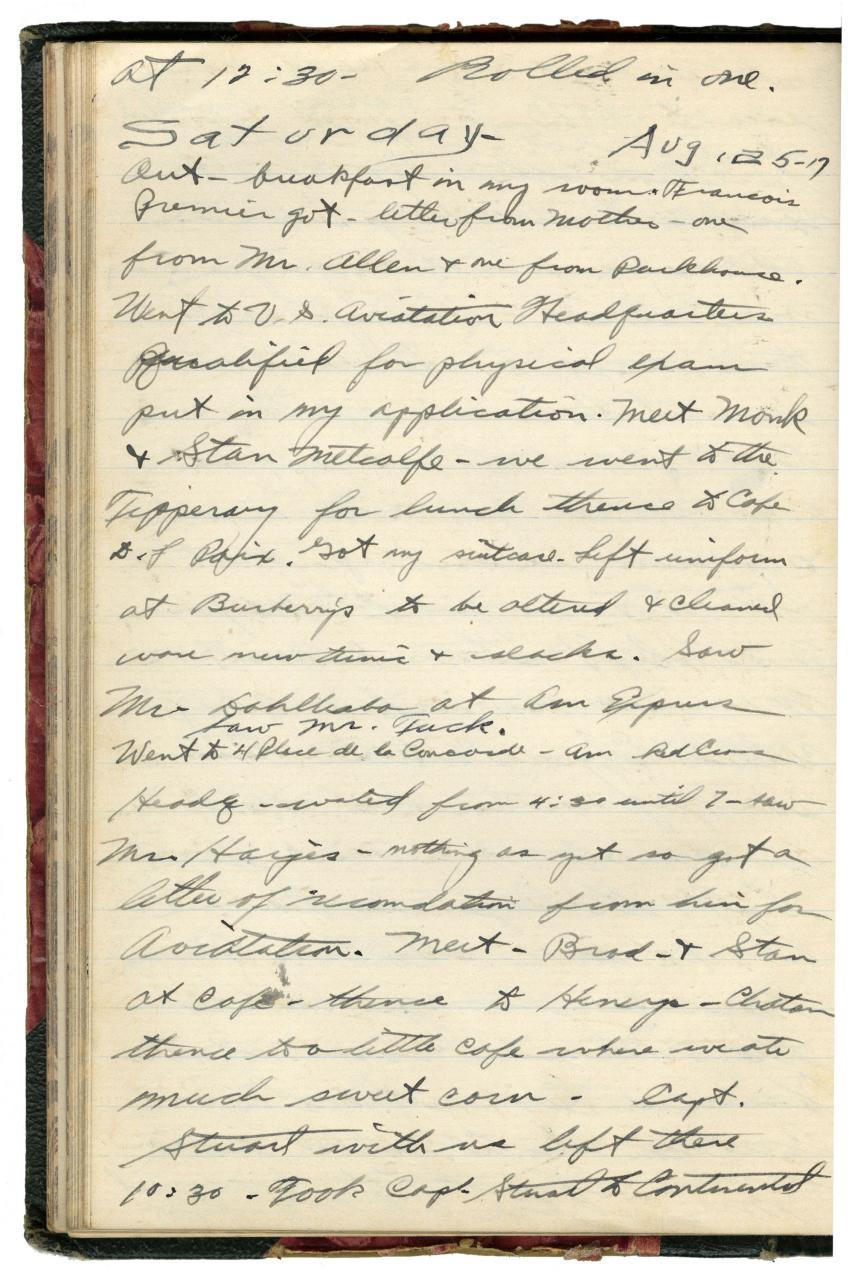 at 12:30- Rolled in one.
Saturday- Aug. 25-17
Out- breakfast in my room. Francois
Premier got - letter from Mother - one
from Mr. Allen & one from Parkhouse.
Went to U.S. Aviatation Headquarters
Qualified for physical exam
put in my application. Meet Monk
& Stan Metcalfe - we went to the
Tipperary for lunch thence to Cafe
d. l Paix. Got my suitcase. Left uniform
at Burberrys to be altered & cleaned
wore new tunic & slacks. Saw
Mr. at Am Express
Saw Mr. Tuck.
Went to 4 Place de la Concorde - Am Red Cross
Headq - waited from 4:30 until 7 - saw
Mr. Harjes - nothing as yet so got a
letter of recomdation from him for
Aviatation. Meet - Brad - & Stan
at Cafe - thence to Henerys - Chatam
thence to a little cafe where we ate
much sweet corn - Capt.
Stuart with us left there
10:30 - Took Capt. Stuart to Continental